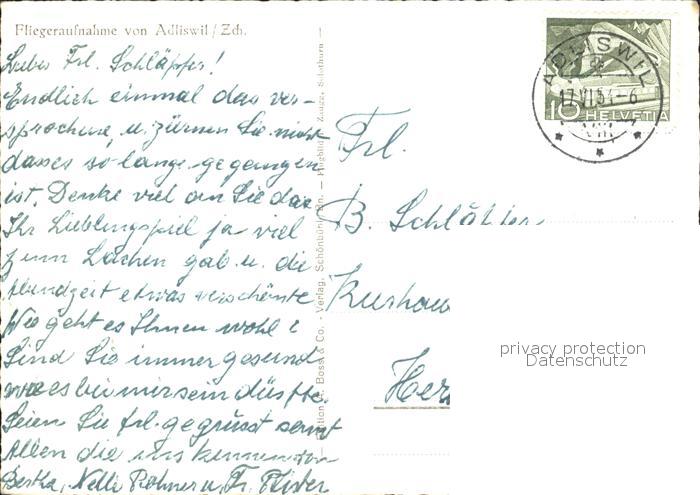 Fliegeraufnahme von Adliswil / Zch.
Liebes Frl. Schläpfer!
Endlich einmal das ver-
sprochene, u. zürnen Sie nicht
dasses so lange gegangen
ist. Denke viel an Sie das
Ihr Lieblingspiel ja viel
zum Lachen gab u. die
etwas verschönte
Wie geht es Ihnen wohl?
Sind Sie immer gesund
was es bei mir sein dürfte.
Seien Sie frl. gegrüsst samt
Allen die uns kennen von
Bertha, Nelli Rohner u. Fr.
Verlag, Schönbühl
ADLISWIL
17.VI.54-6
10 HELVETIA
Frl.
B. Schläpfer
Kurhau
Her
privacy protection
Datenschutz